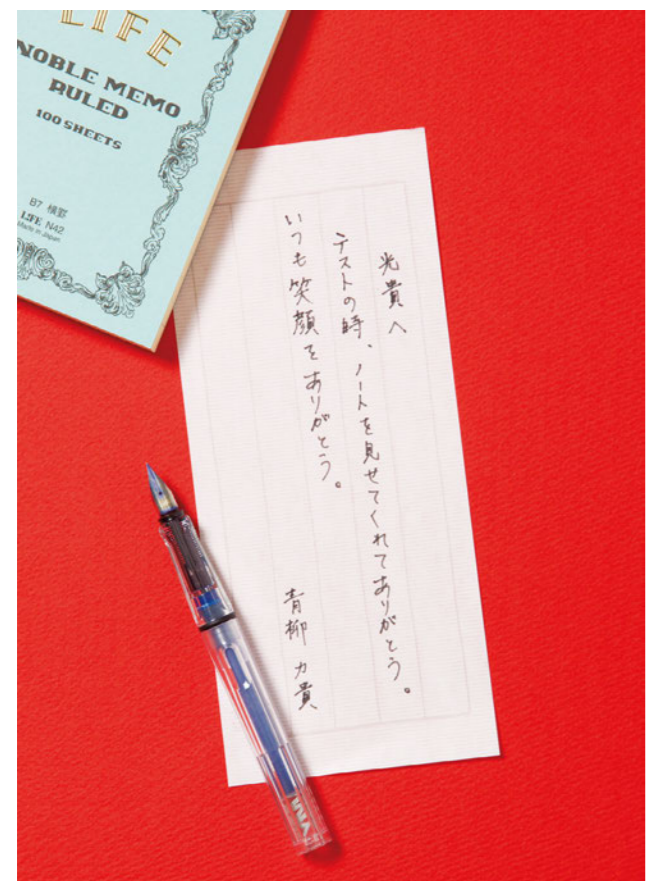 LIFE
NOBLE MEMO
RULED
100 SHEETS
B7 横罫
LIFE N42
Made in Japan
光貴へ
テストの時、ノートを見せてくれてありがとう。
いつも笑顔をありがとう。
青柳 力貴